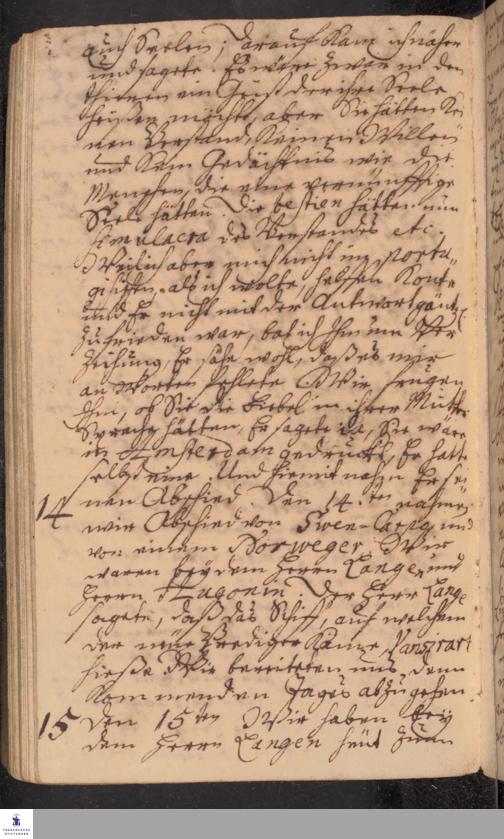 auch Seelen; darauf kam ich näher
und sagete. Es wäre zwar in den
thieren ein Geist der ihre Seele
heißen möchte, aber Sie hätten kei
nen Verstand, keinen Willen
und kein Gedächtnis wie die
Menschen, die eine vernünfftige
Seele hätten. Die bestien hätten nur
simulacra des Verstandes etc.
Weil ich aber mich nicht im Portu„
gisischen, als ich wolte, helfen konte
und Er nicht mit der Antwort gäntzl.
zufrieden war, bat ich Ihn um Ver
zeihung, Er sähe wohl, daß es mir
an Worten fehlete. Wir frugen
Ihn, ob Sie die Biebel in ihrer Mutter
Sprache hätten, Er sagete ia, Sie wäre
in Amsterdam gedruckt, Er hatte
selbst eine. Und hiemit nahm Er sei
nen Abschied
14 Den 14.ten nahmen
wir Abschied von Swen und
von einem Norweger. Wir
waren bey dem Herrn Langen und
Herrn Hugonin. Der Herr Lange
sagete, daß das Schiff, auf welchem
der neue Prediger käme, Vansirart
hieße. Wir bereiteten uns denn
kommenden Tages abzugehen
15 Den 15ten Wir haben bey
dem Herrn Langen heut zum
FRANCKESCHE
STIFTUNGEN